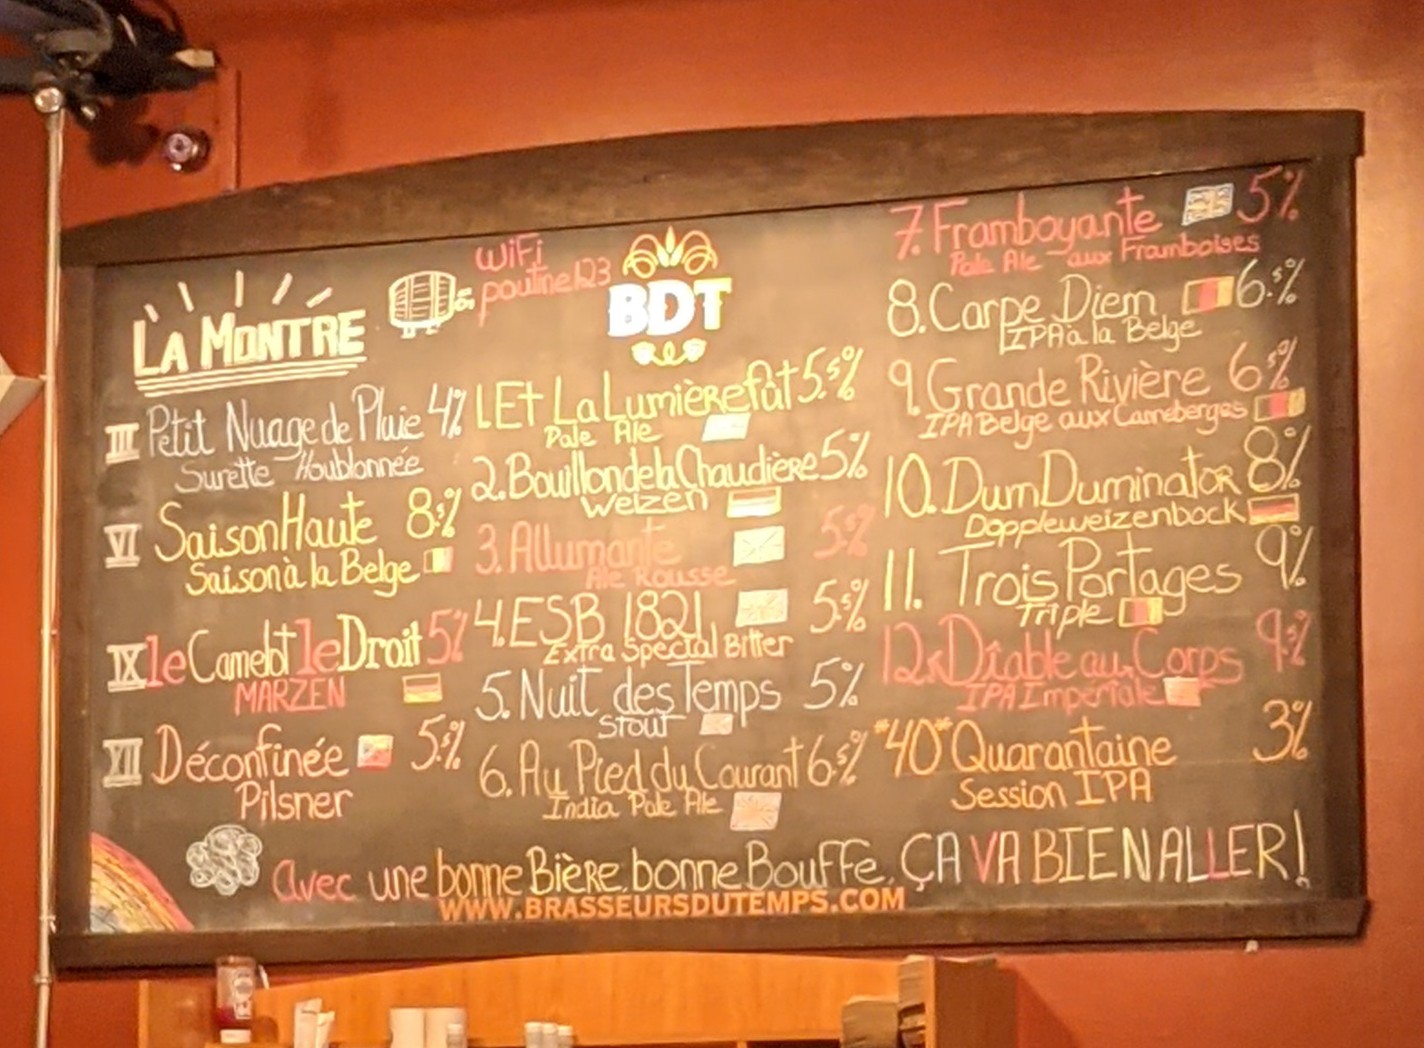 WiFi
poutine123
BDT
LA MONTRE
III Petit Nuage de Pluie 4%
Surette Houblonnée
VI Saison Haute 8.5%
Saison à la Belge
IX le Camelot le Droit 5%
MARZEN
XII Déconfinée 5.5%
Pilsner
1. Et La Lumière fût 5.5%
Pale Ale
2. Bouillon de la Chaudière 5%
Weizen
3. Allumante 5.5%
Ale Rousse
4. ESB 1821 5.5%
Extra Special Bitter
5. Nuit des Temps 5%
Stout
6. Au Pied du Courant 6.5%
India Pale Ale
7. Framboyante 5%
Pale Ale aux Framboises
8. Carpe Diem 6.5%
IPA à la Belge
9. Grande Rivière 6.5%
IPA Belge aux Canneberges
10. Dum Duminator 8%
Doppleweizenbock
11. Trois Portages 9%
Triple
12. Diable au Corps 9.5%
IPA Impériale
*40* Quarantaine 3%
Session IPA
Avec une bonne Bière, bonne Bouffe, ÇA VA BIEN ALLER!
WWW.BRASSEURSDUTEMPS.COM